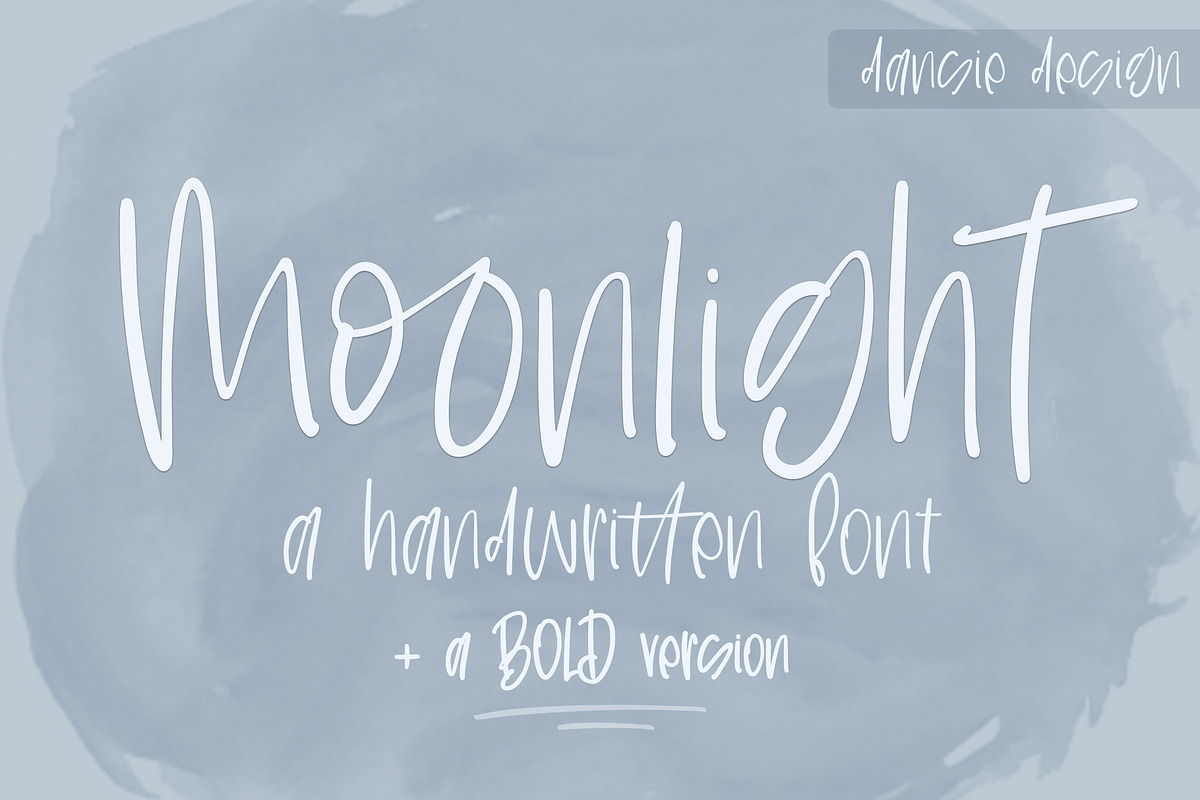 dansie design
Moonlight
a handwritten font
+ a BOLD version